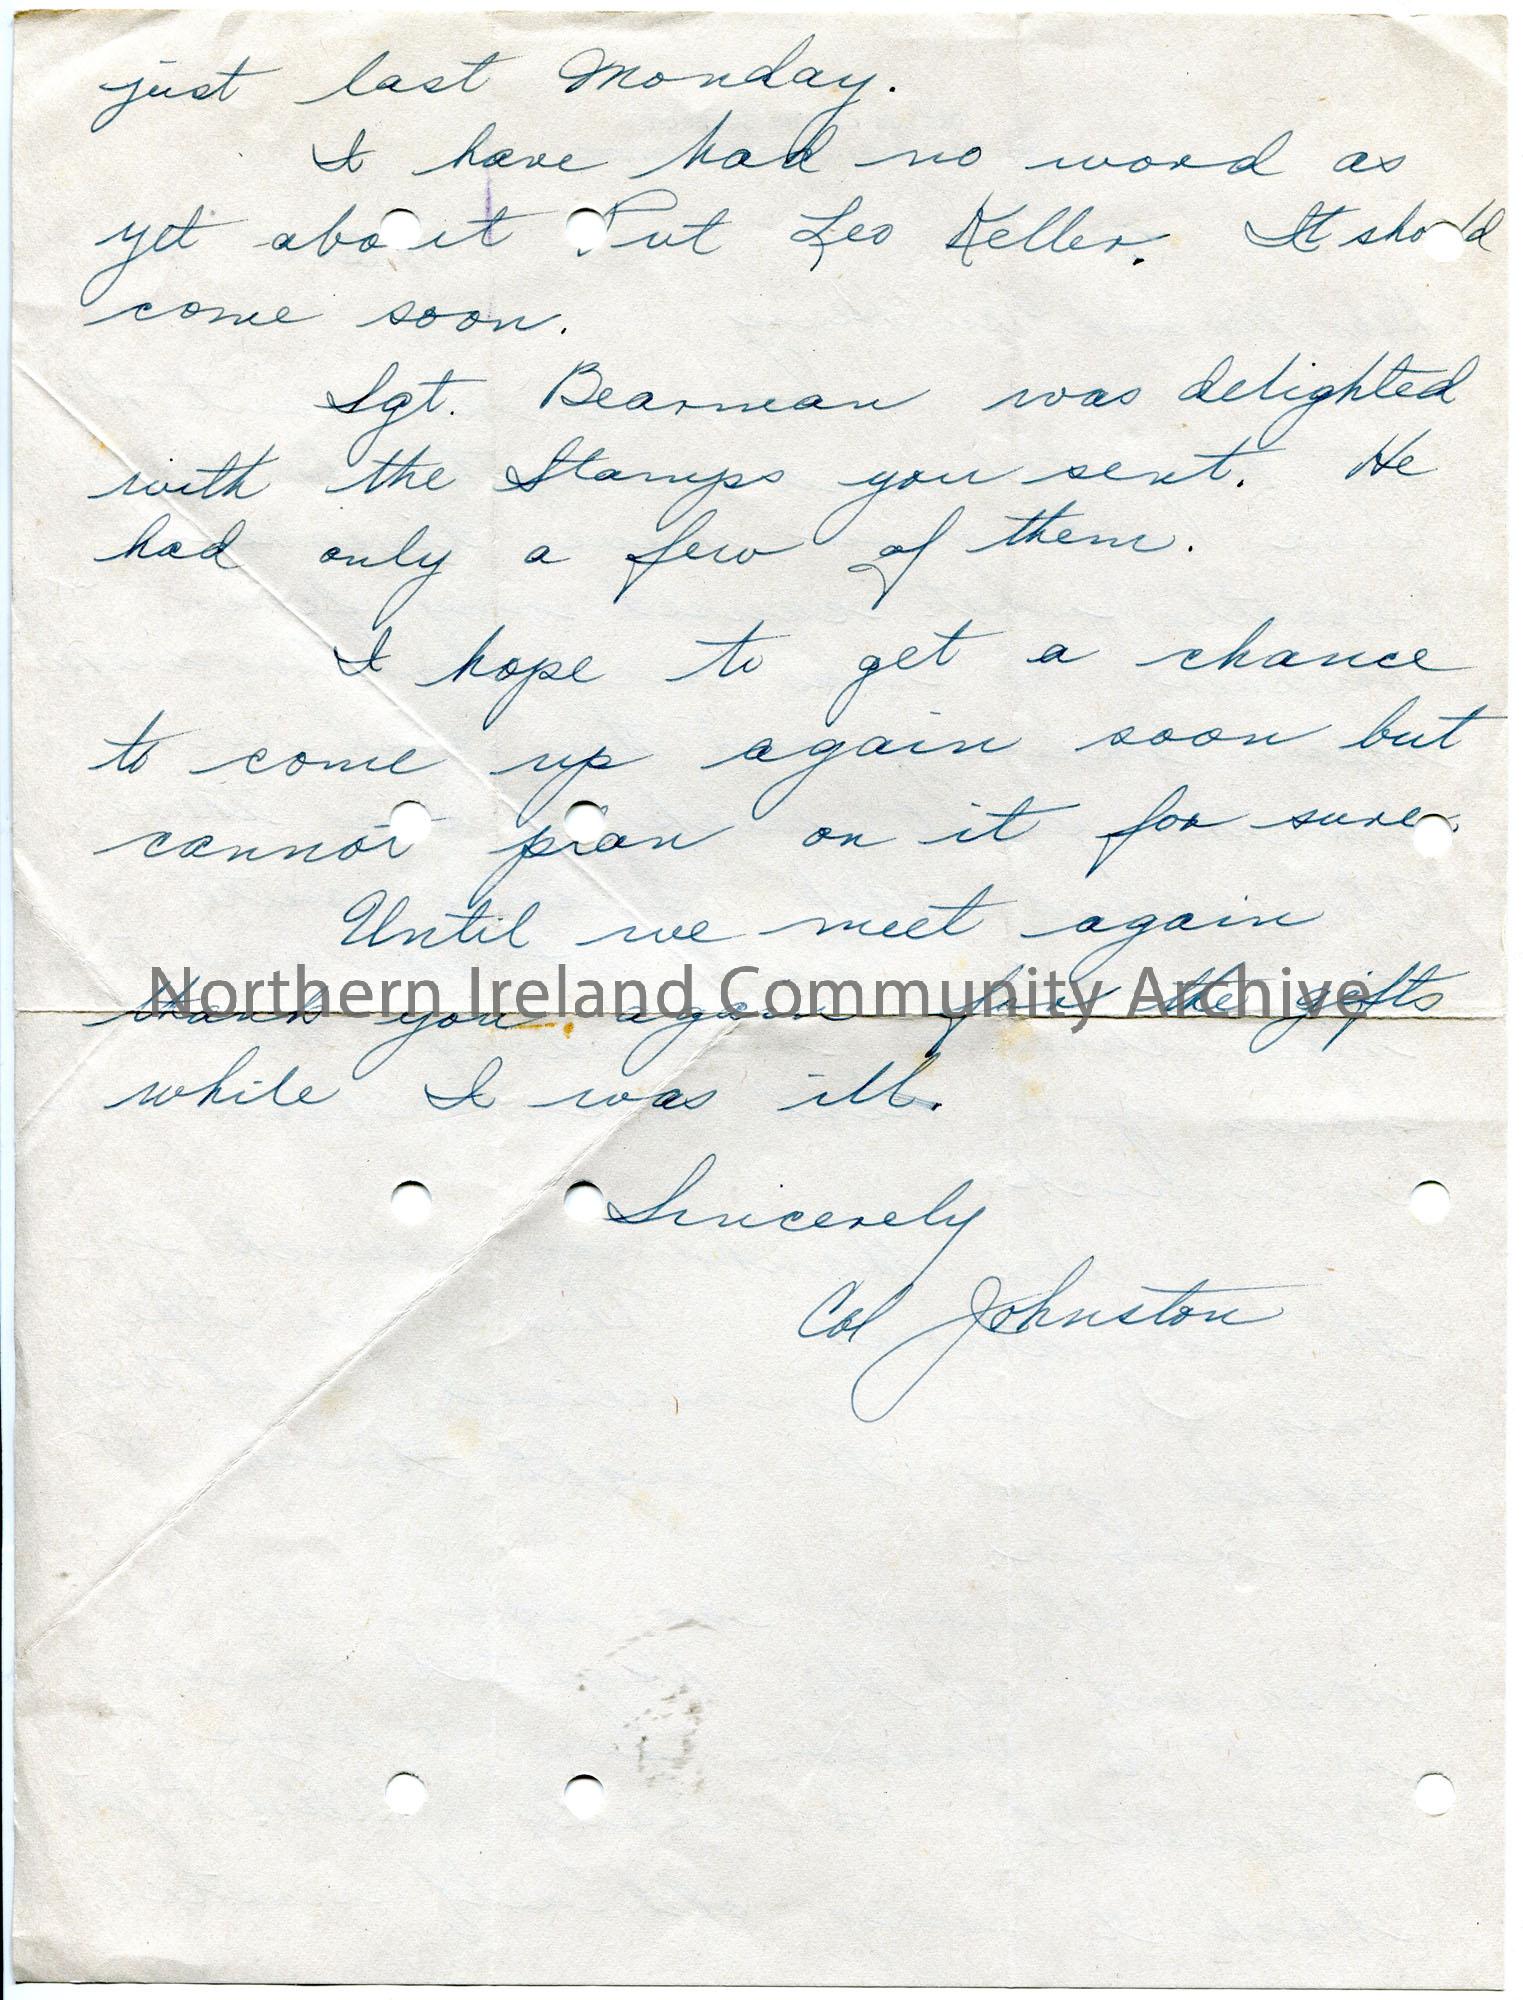 just last Monday.
I have had no word as
yet about Pvt Leo Keller. It should
come soon.
Sgt. Bearman was delighted
with the Stamps you sent. He
had only a few of them.
I hope to get a chance
to come up again soon but
cannot plan on it for sure.
Until we meet again
Northern Ireland Community Archive
thank you again for the gifts
while I was ill.
Sincerely
Col Johnston